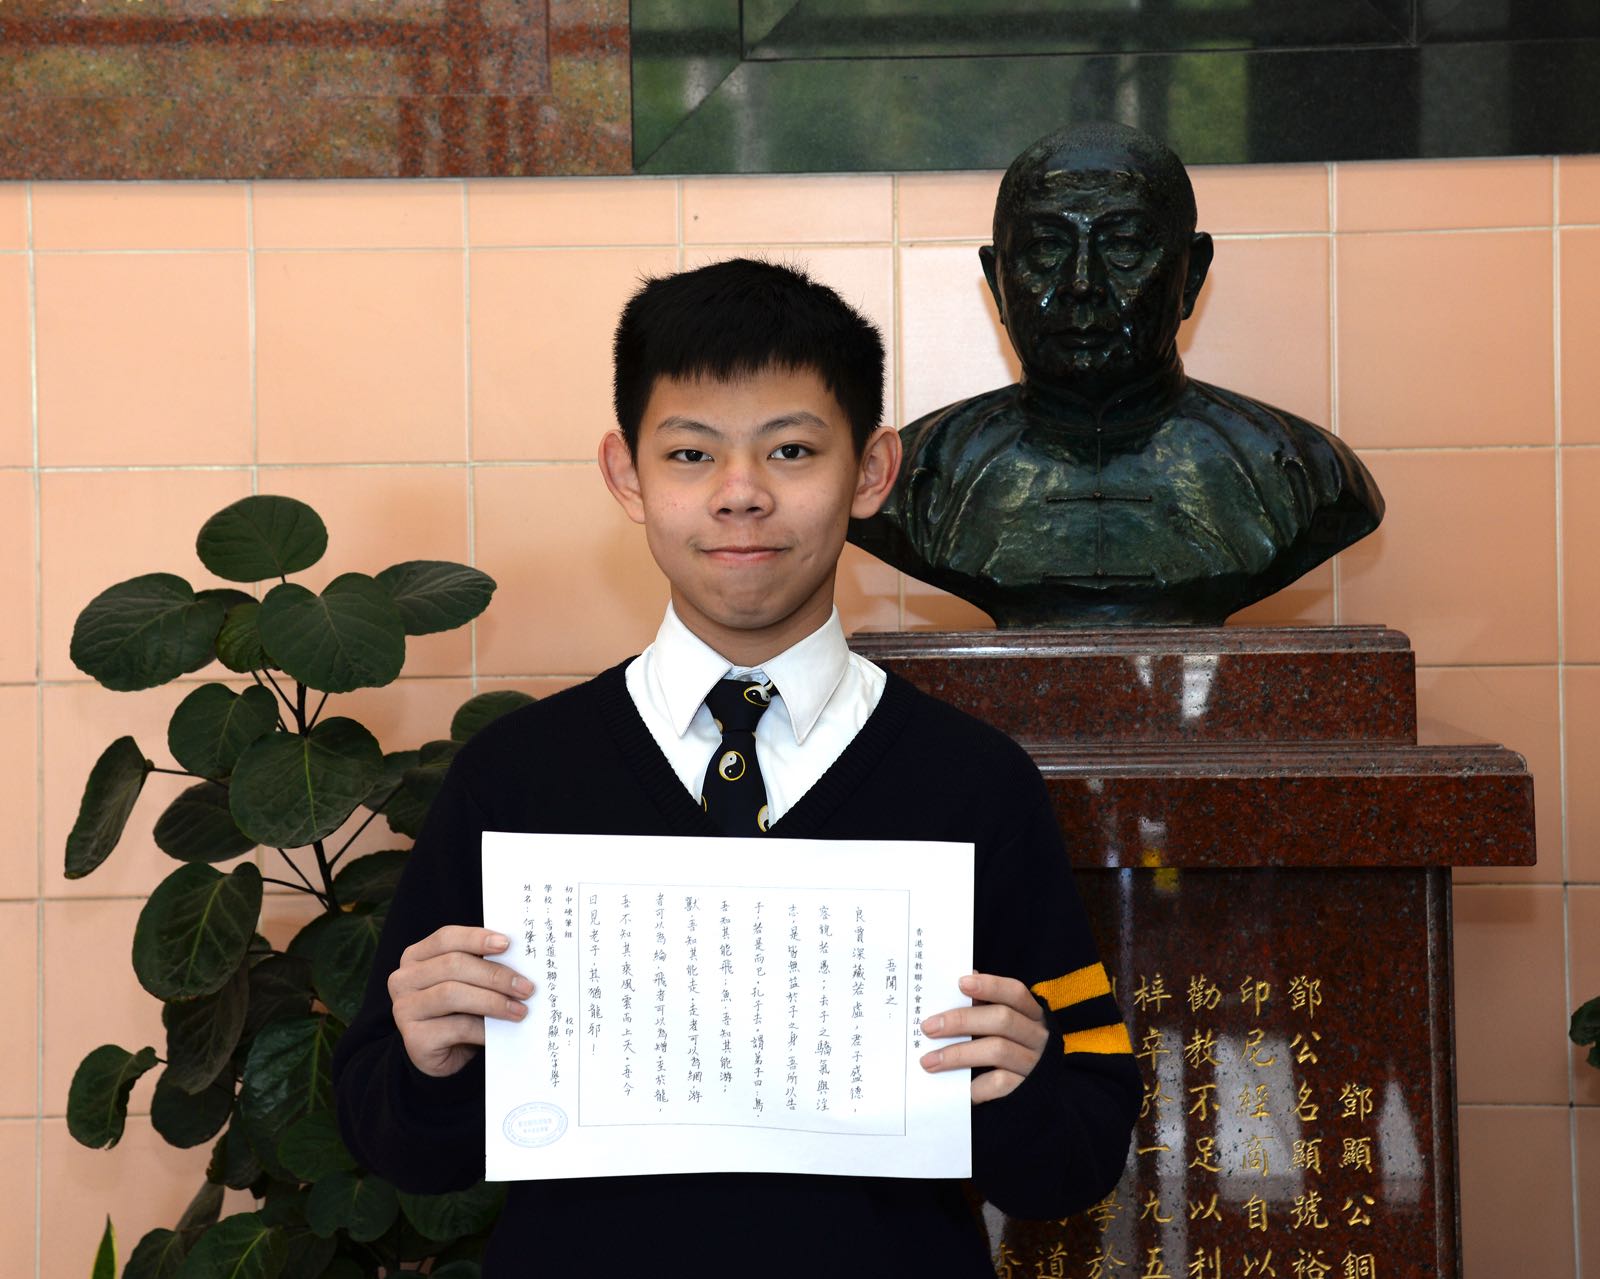 香港道教聯合會書法比賽
吾聞之：
良賈深藏若虛，君子盛德，
容貌若愚。去子之驕氣與淫
志，是皆無益於子之身，吾所以告
子，若是而已。孔子去，謂弟子曰：鳥，
吾知其能飛；魚，吾知其能游；
獸，吾知其能走。走者可以為網，游
者可以為綸，飛者可以為矰，至於龍，
吾不知其乘風雲而上天。吾今
日見老子，其猶龍邪！
初中硬筆組
學校：香港道教聯合會鄧顯紀念中學
校印：
姓名：何
鄧顯公銅
鄧公名顯號裕
印尼經商自以
勸教不足以利
梓卒於一九五
學於
道
香